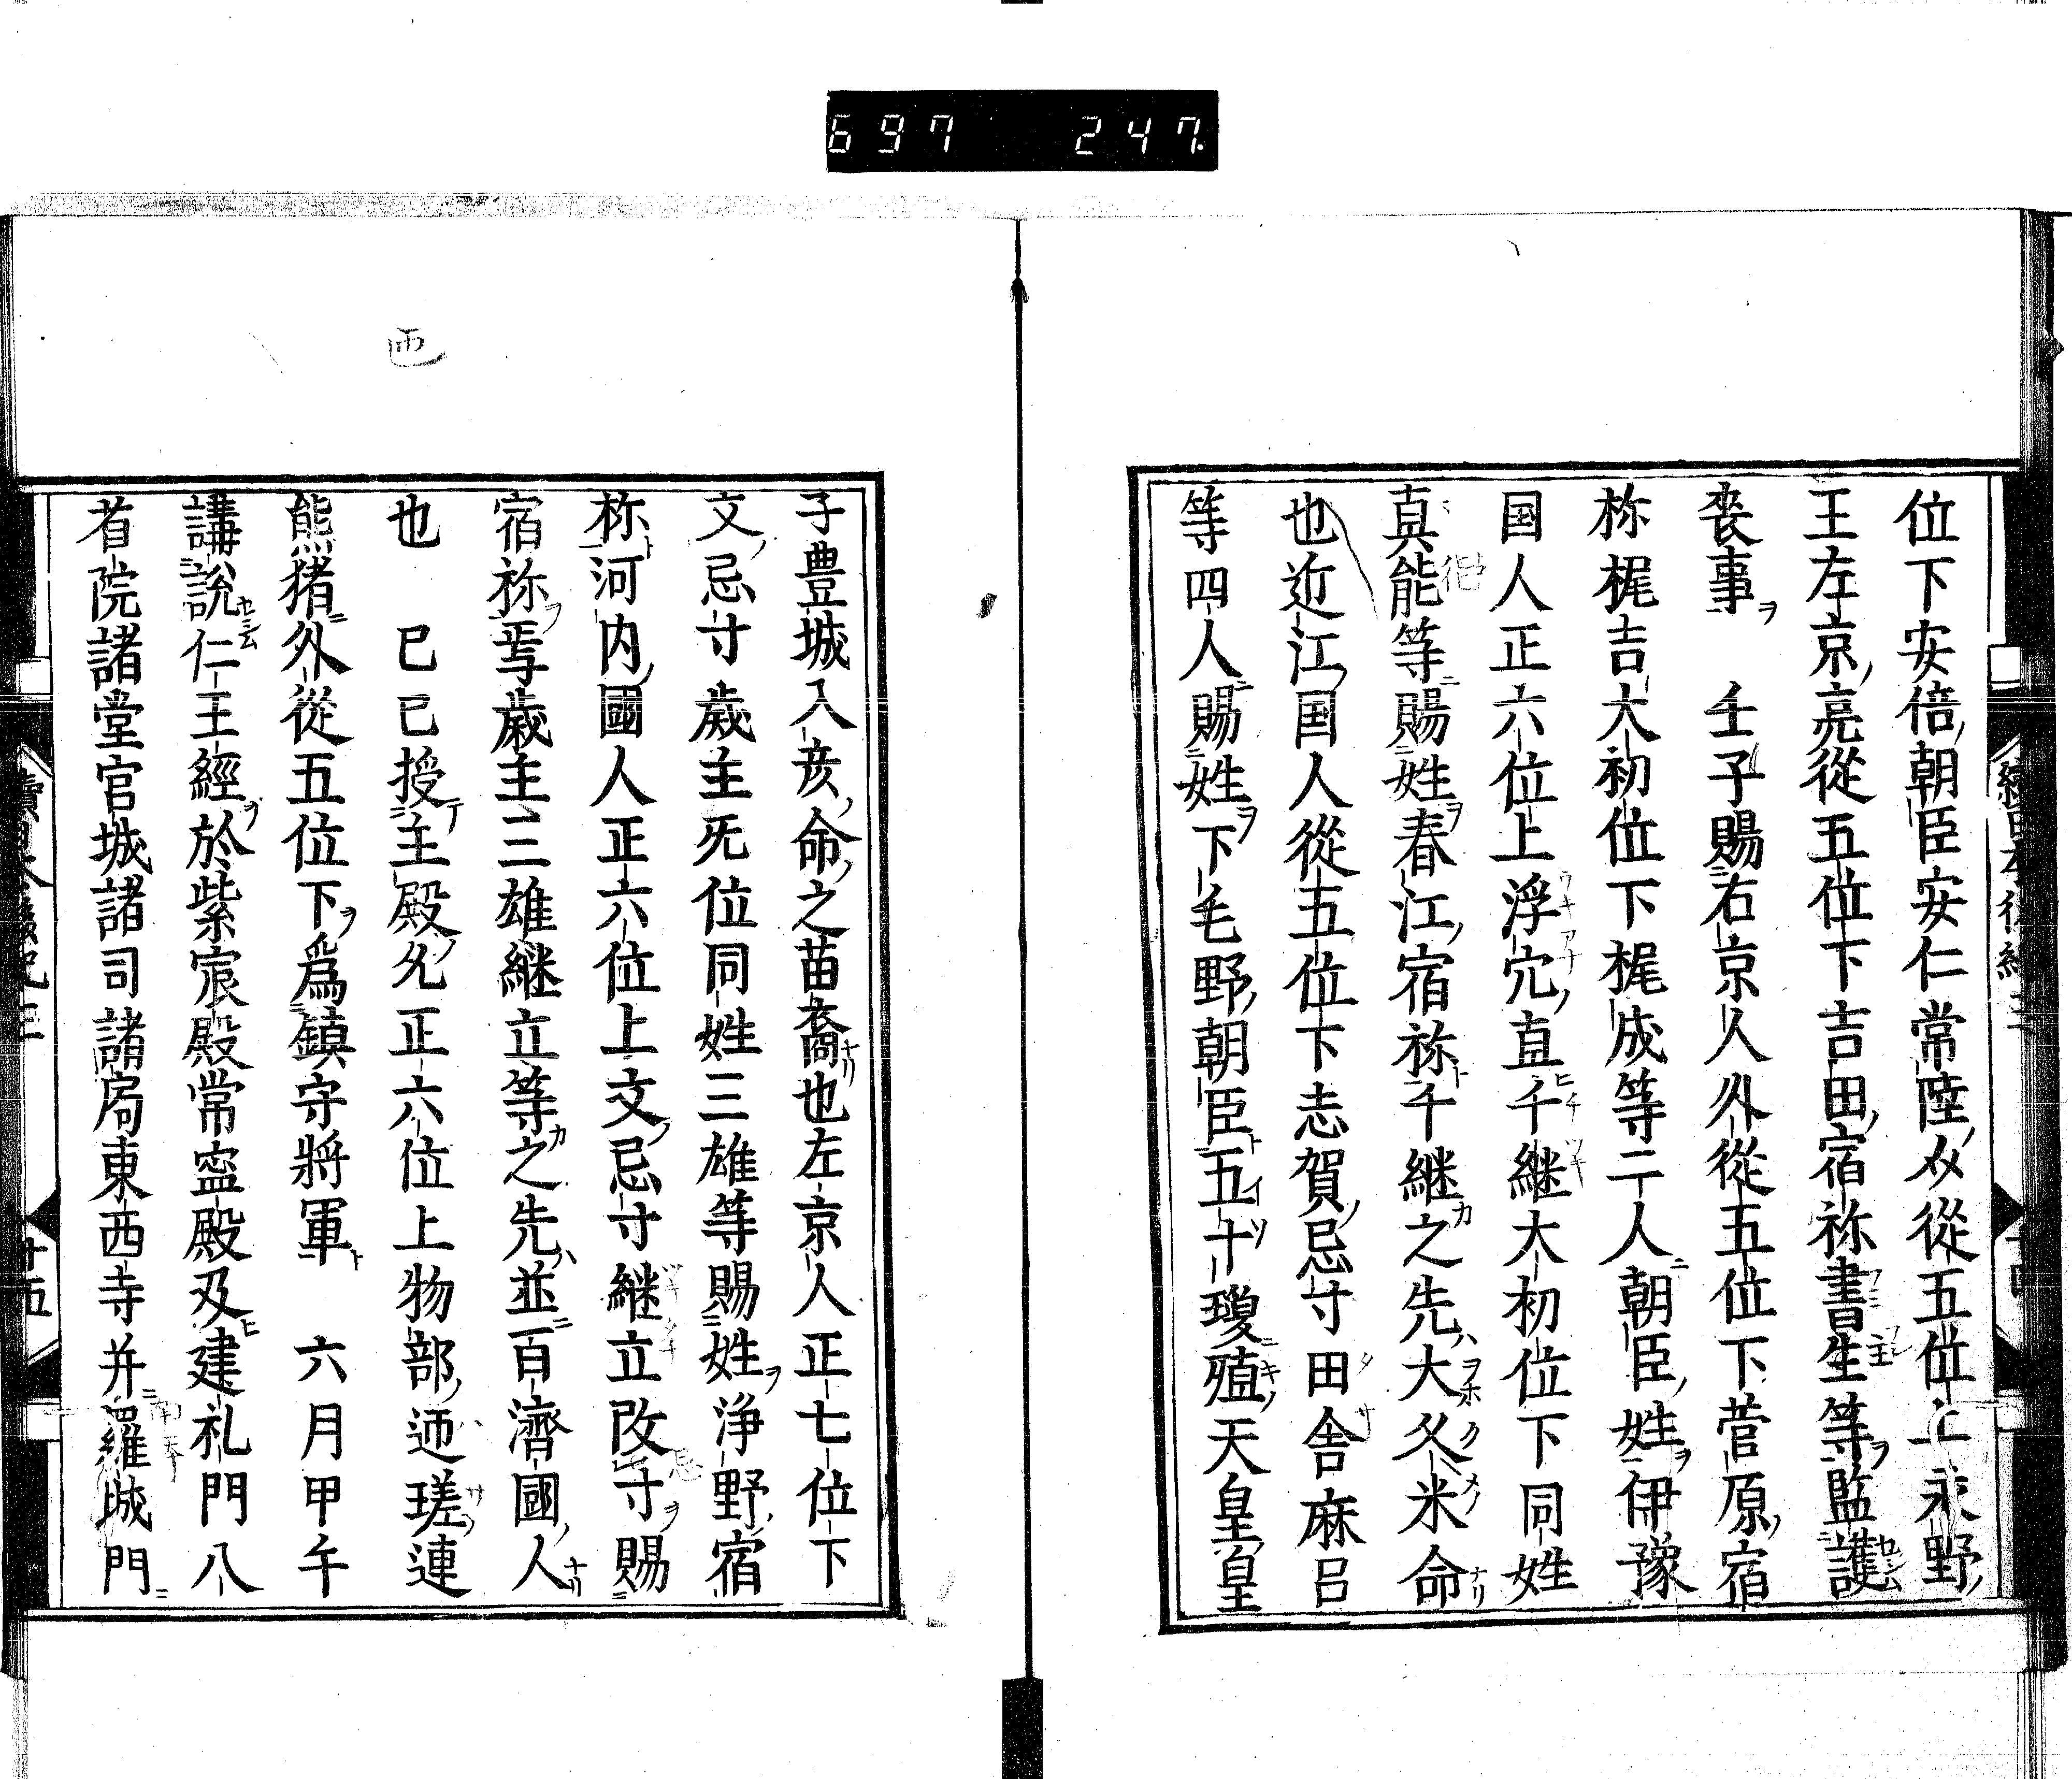 697 247
位下安倍朝臣安仁常陸介從五位上永野
王左京亮從五位下吉田宿祢書主等監護
喪事 壬子賜右京人外從五位下菅原宿
祢梶吉大初位下梶成等二人朝臣姓伊豫
国人正六位上浮穴直千継大初位下同姓
真能等賜姓春江宿祢千継之先大久米命
也近江国人從五位下志賀忌寸田舎麻呂
等四人賜姓下毛野朝臣五十瓊殖天皇皇
子豊城入彦命之苗裔也左京人正七位下
文忌寸歳主死位同姓三雄等賜姓浄野宿
祢河内國人正六位上文忌寸継立改寸賜
宿祢焉歳主三雄継立等之先並百濟國人
也 已已授主殿允正六位上物部迊瑳連
熊猪外從五位下爲鎮守將軍 六月甲午
講説仁王經於紫宸殿常寧殿及建礼門八
省院諸堂官城諸司諸局東西寺并羅城門